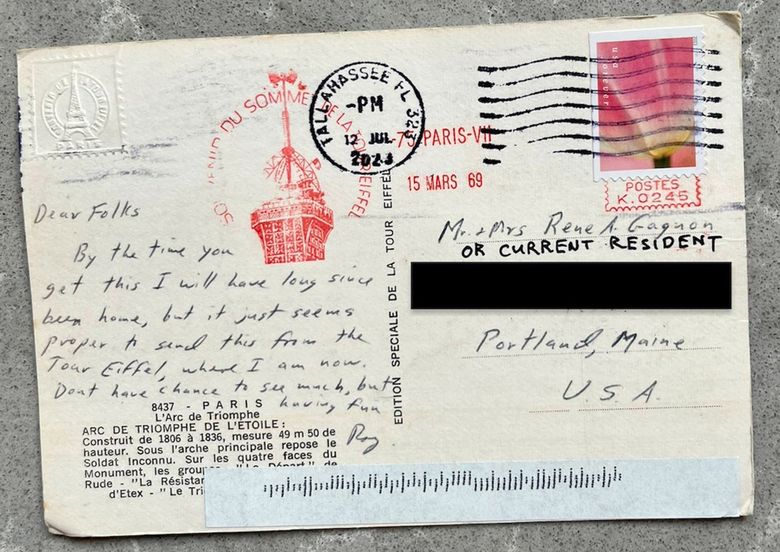 SOUVENIR DE
PARIS
SOUVENIR DU SOMMET DE LA TOUR EIFFEL
TALLAHASSEE FL 323
-PM
12 JUL
2023
-75-PARIS-VII
15 MARS 69
usa forever
POSTES
K.0245
Dear Folks
By the time you
get this I will have long since
been home, but it just seems
proper to send this from the
Tour Eiffel, where I am now.
Dont have chance to see much, but
having fun
Ray
8437 - PARIS
L'Arc de Triomphe
ARC DE TRIOMPHE DE L'ÉTOILE :
Construit de 1806 à 1836, mesure 49 m 50 de
hauteur. Sous l'arche principale repose le
Soldat Inconnu. Sur les quatre faces du
Monument, les groupes "Le Départ" de
Rude - "La Résistan
d'Etex - "Le Tri
EDITION SPECIALE DE LA TOUR EIFFEL
Mr. + Mrs Rene A. Gagnon
OR CURRENT RESIDENT
Portland, Maine
U.S.A.